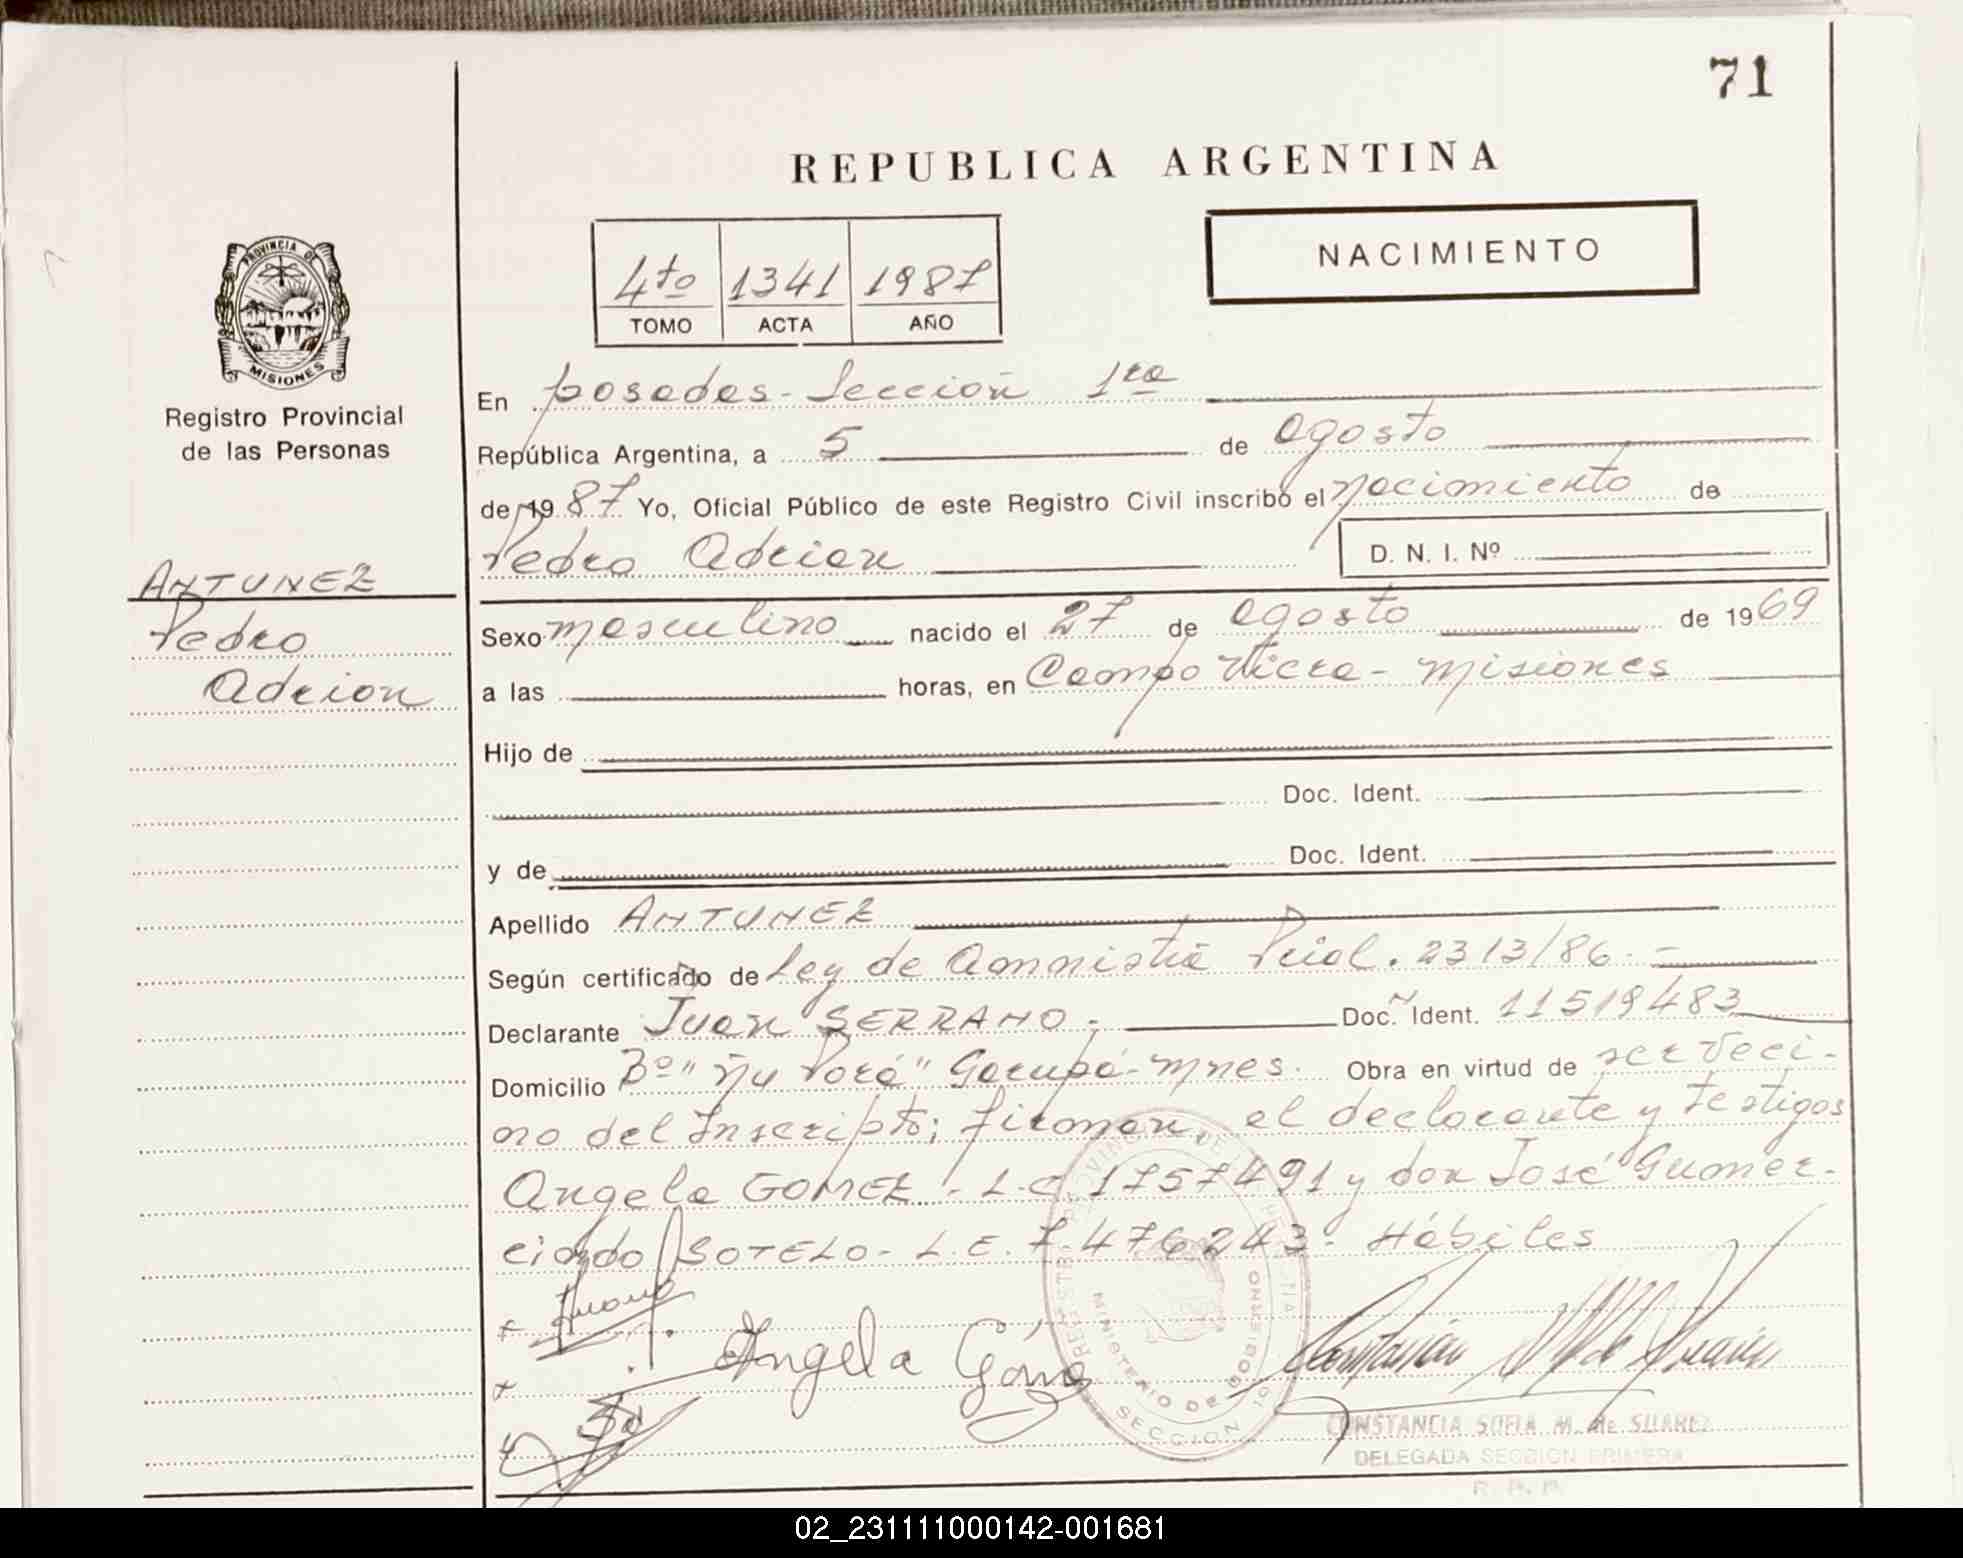 71
REPUBLICA ARGENTINA
PROVINCIA DE
MISIONES
Registro Provincial
de las Personas
4to 1341 1987
TOMO ACTA AÑO
NACIMIENTO
En Posadas - Sección 1ra
República Argentina, a 5 de Agosto
de 1987 Yo, Oficial Público de este Registro Civil inscribo el nacimiento de
Pedro Adrian D. N. I. Nº
ANTUNEZ
Pedro
Adrian
Sexo masculino nacido el 27 de agosto de 1969
a las horas, en Campo Viera - Misiones
Hijo de
Doc. Ident.
y de Doc. Ident.
Apellido ANTUNEZ
Según certificado de Ley de Amnistia Pcial. 2313/86.-
Declarante Juan SERRANO.- Doc. Ident. 11519483
Domicilio Bº "Ñu Porá" Garupá-Mnes. Obra en virtud de ser veci-
no del Inscripto; firman, el declarante y testigos
Angela GOMEZ - L.C 1757491 y don José Gumer-
cindo SOTELO - L.E. 7.476243- Hábiles
Angela Góm
MINISTERIO DE GOBIERNO
SECCION 1
CONSTANCIA SOFIA M. de SUAREZ
DELEGADA SECCION PRIMERA
R. P. P.
02_231111000142-001681